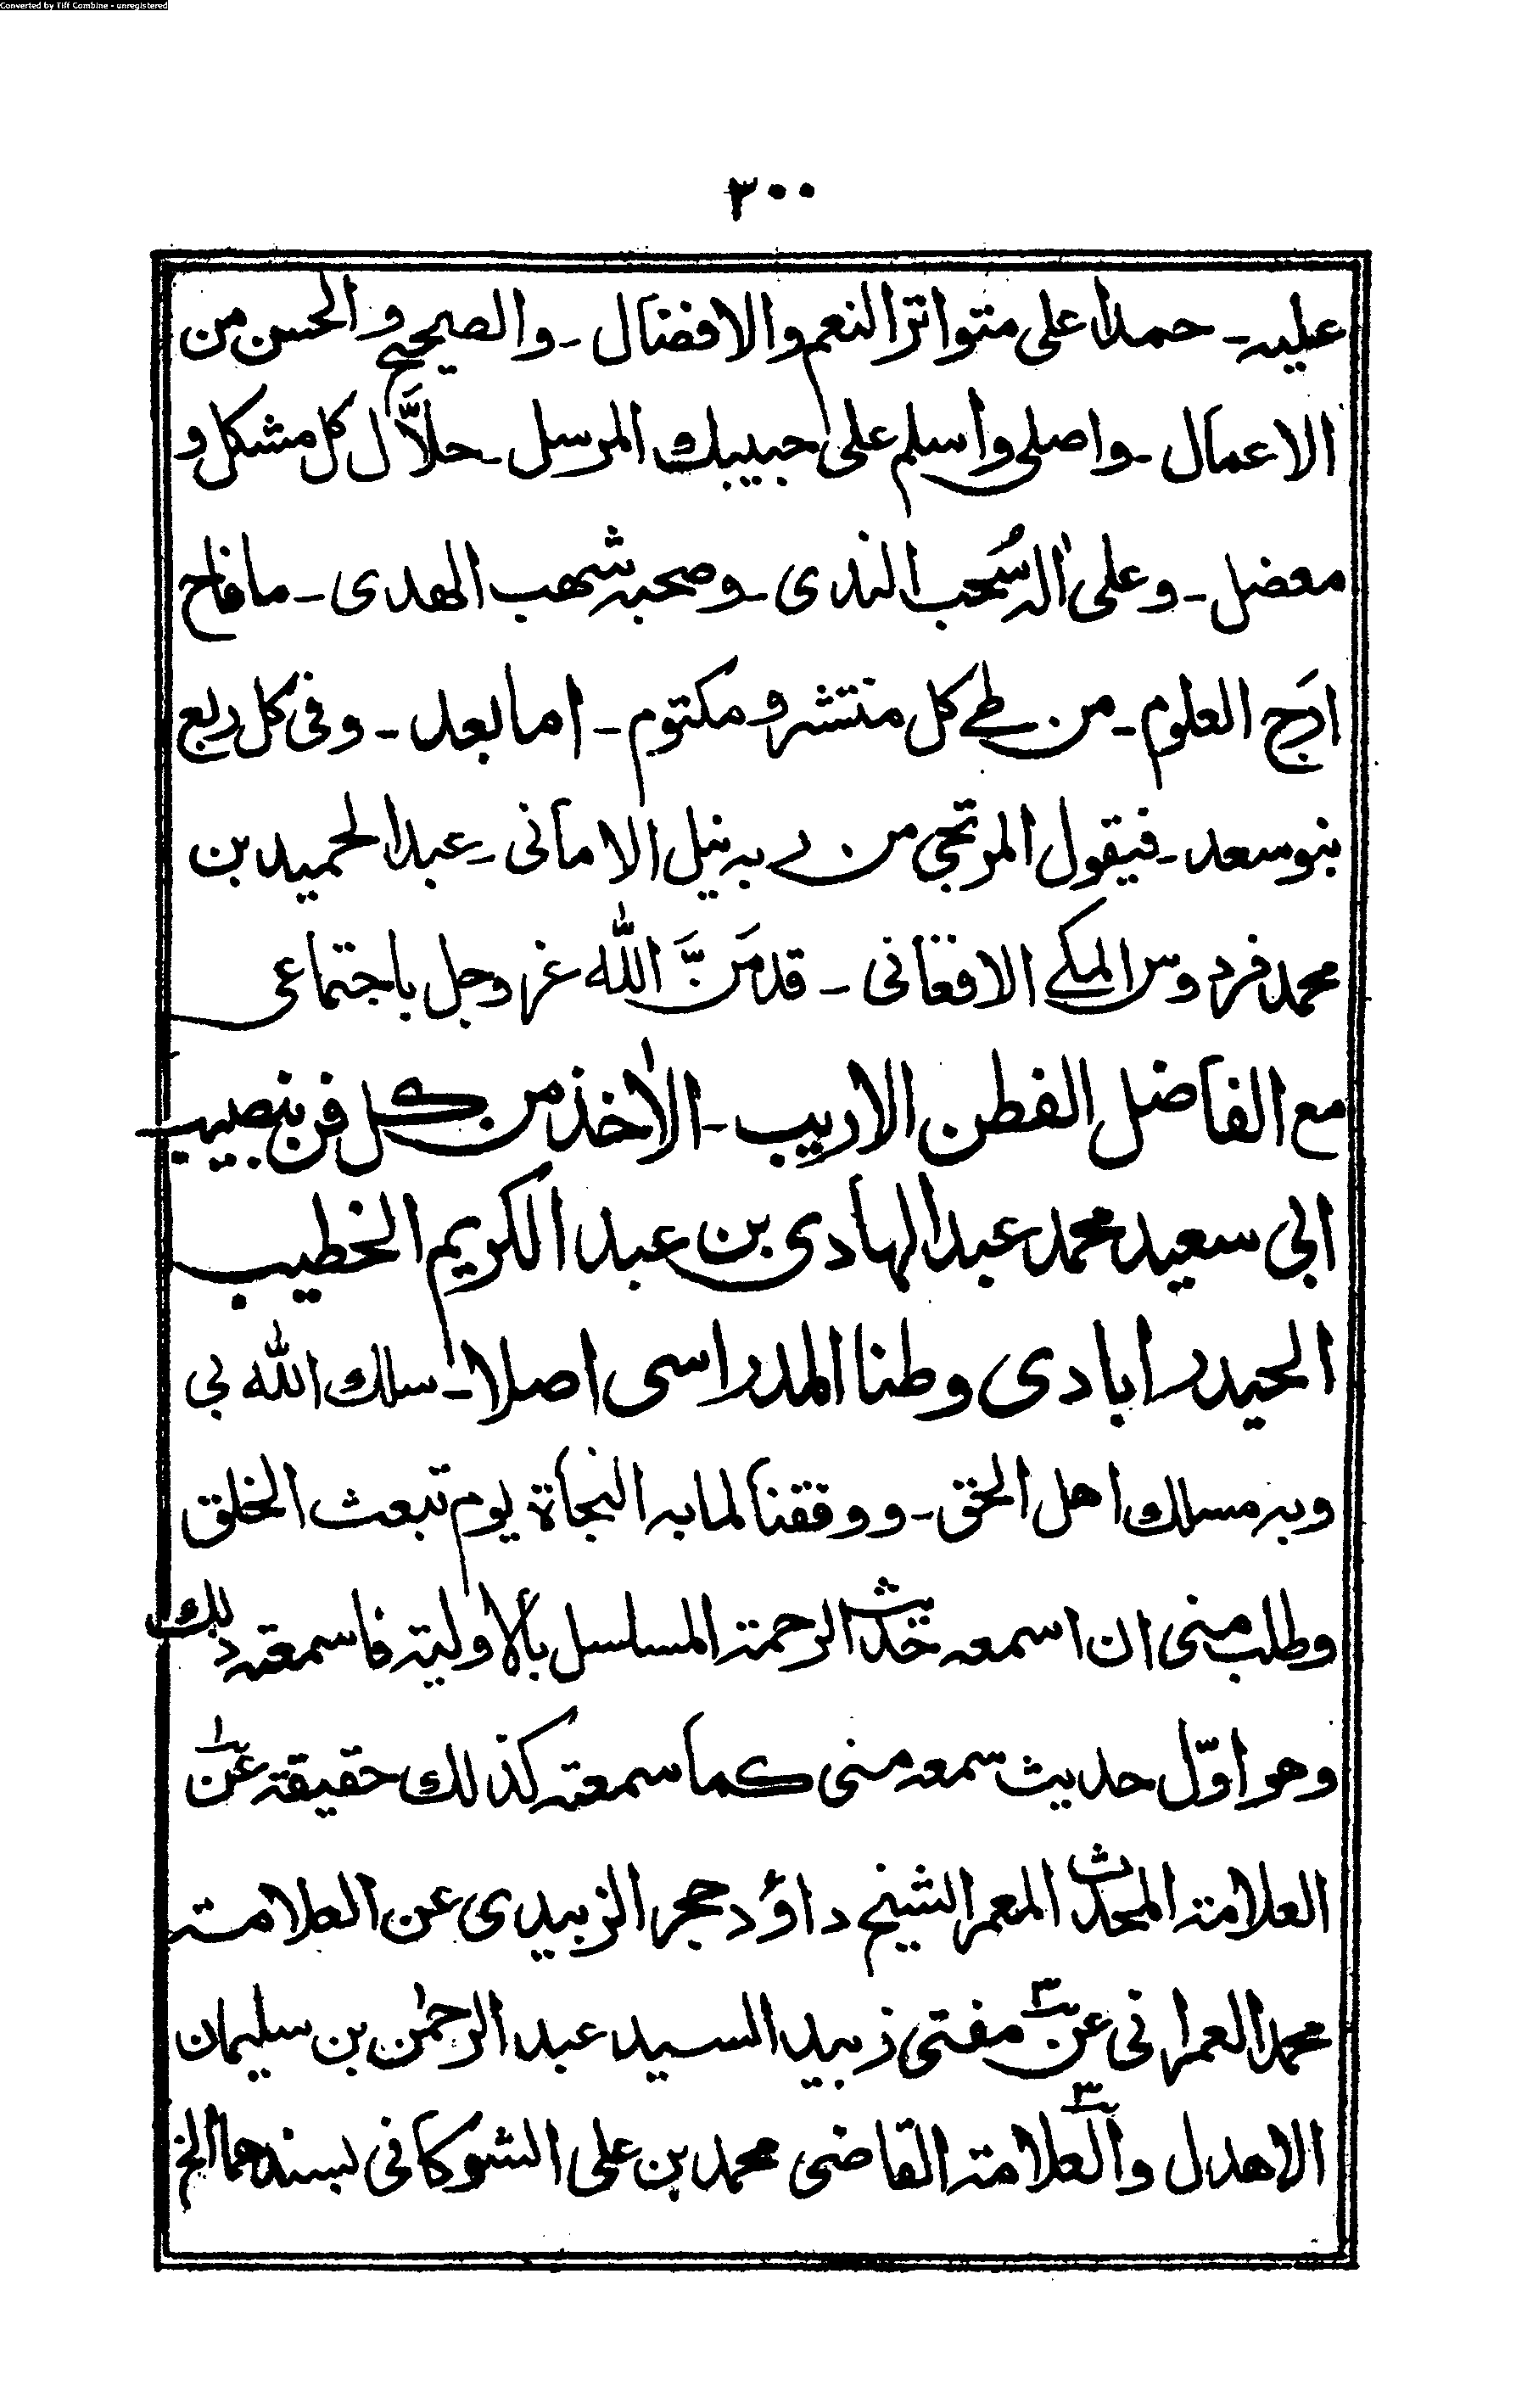 Converted by Tiff Combine - unregistered
٣٠٠
عليه - حمدا على متواتر النعم والافضال - والصحيح والحسن من
الاعمال - واصلى واسلم على حبيبك المرسل - حلاَّل كل مشكل و
معضل - وعلى اٰله سُحب الندى - وصحبه شهب الهدى - ما فاح
ارَج العلوم - من طے كل منتشر ومكتوم - اما بعد - وفى كل ربع
بنو سعد - فيقول المرتجى من ربه نيل الامانى - عبد الحميد بن
محمد فردوس المكے الافغانى - قد مَنَّ الله عز وجل باجتماعى
مع الفاضل الفطن الاريب - الاٰخذ من كل فن بنصيب
ابى سعيد محمد عبد الهادى بن عبد الكريم الخطيب
الحيدرابادى وطنا المدراسى اصلا - سلك الله بى
وبه مسلك اهل الحق - ووفقنا لما به النجاة يوم تبعث الخلق
وطلب منى ان اسمعه حديث الرحمة المسلسل بالاولية فاسمعته ذلك
وهو اوّل حديث سمعه منى كما سمعته كذلك حقيقة عن
العلامة المحدث المعمر الشيخ داؤد حجر الزبيدى عن العلامة
محمد العمرانى عن مفتى زبيد السيد عبد الرحمٰن بن سليمان
الاهدل والعلامة القاضى محمد بن على الشوكانى بسندهما الخ